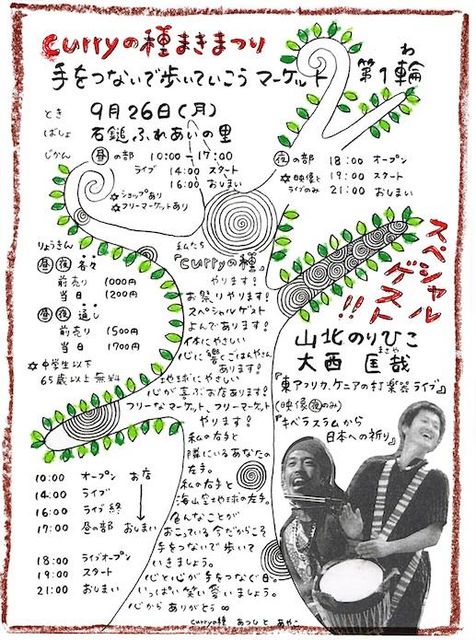 curryの種まきまつり
手をつないで歩いていこう マーケット 第1輪
わ
とき 9月26日(月)
ばしょ 石鎚ふれあいの里
じかん 昼の部 10:00〜17:00
ライブ 14:00 スタート
16:00 おしまい
☆ショップあり
☆フリーマーケットあり
夜の部 18:00 オープン
☆映像と 19:00 スタート
ライブのみ 21:00 おしまい
りょうきん
昼夜 各々
前売り 1000円
当日 1200円
昼夜 通し
前売り 1500円
当日 1700円
☆中学生以下
65歳以上無料
私たち
『curryの種』
やります!
お祭りやります!
スペシャルゲスト
よんであります!
体にやさしい
心に響くごはんやさん
あります!
地球にやさしい
心が喜ぶお店あります!
フリーなマーケット、フリーマーケット
やります!
私の右手と
隣にいるあなたの
左手。
私の右手と
海山空地球の左手。
色んなことが
おこっている今だからこそ
手をつないで歩いて
いきましょう。
心と心が手をつなぐ日。
いっぱい笑い合いましょう。
心から ありがとう∞
スペシャル
ゲスト
!!
山北のりひこ
まさや
大西 匡哉
『東アフリカ、ケニアの打楽器ライブ』
(映像夜のみ)
『キバラスラムから
日本への祈り』
10:00 オープン お店
14:00 ライブ
16:00 ライブ終
17:00 昼の部 おしまい
18:00 ライブオープン
19:00 スタート
21:00 おしまい
curryの種 あつひと あやこ